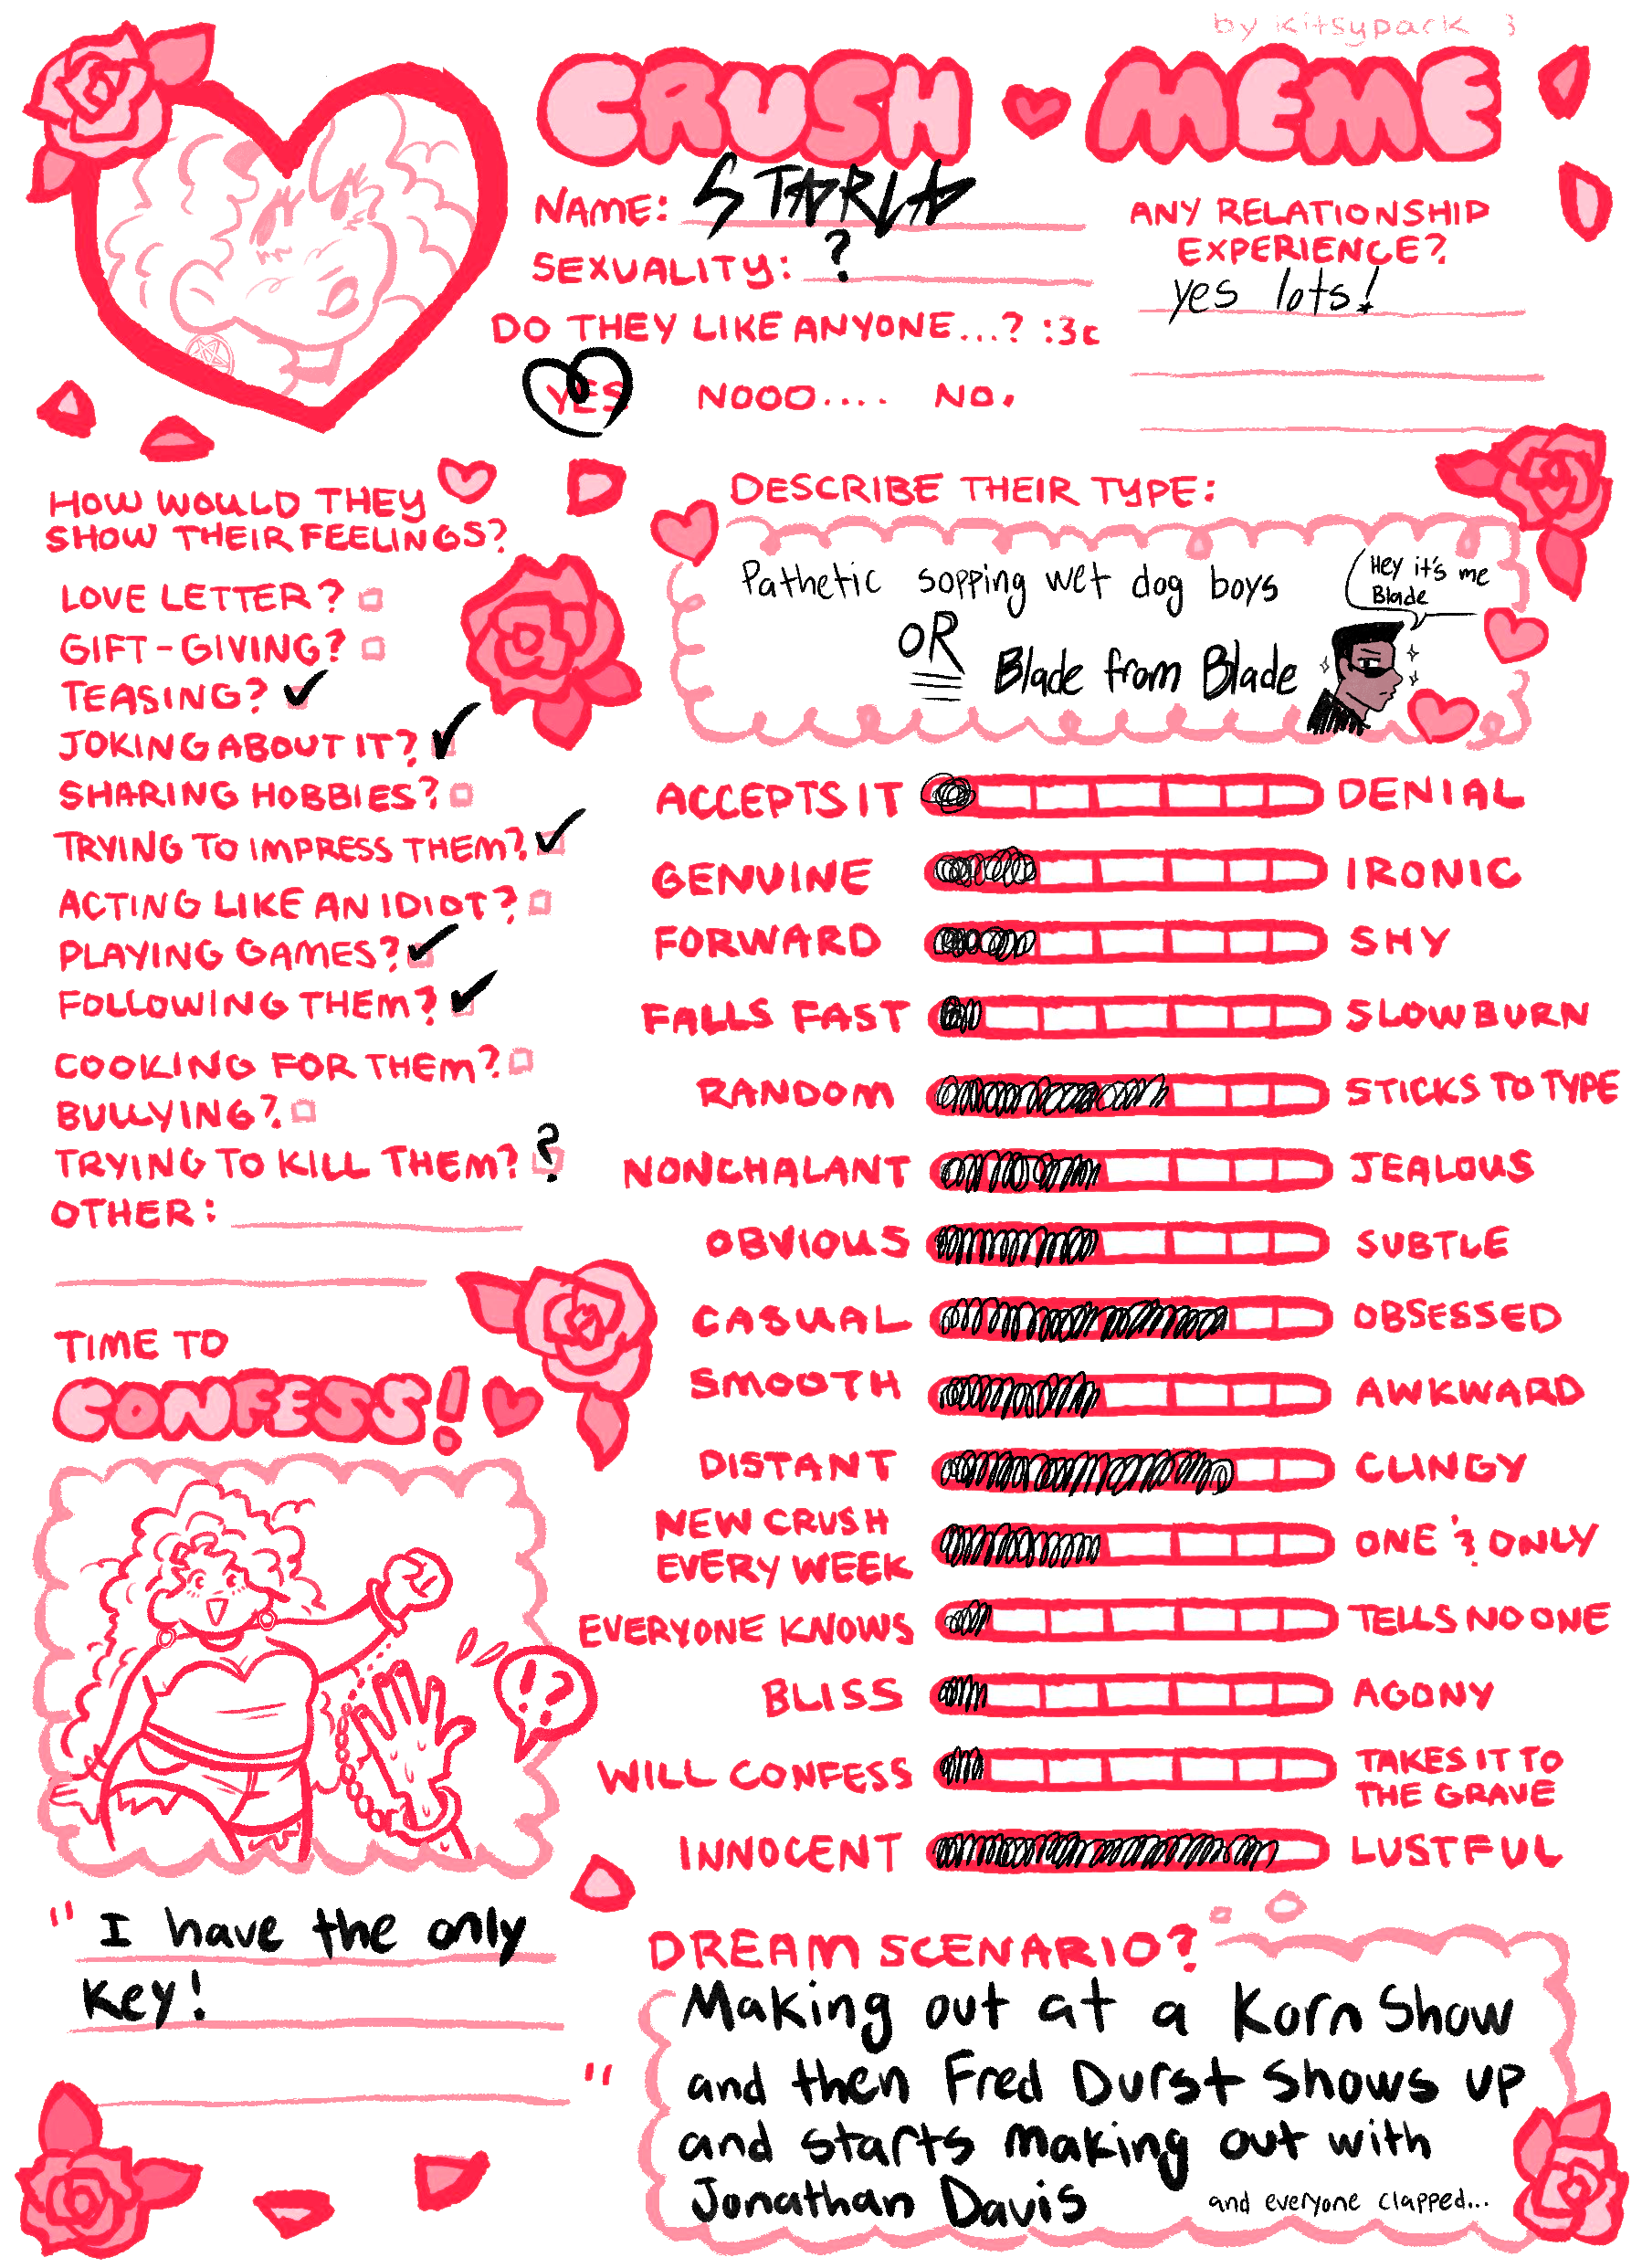 by Kitsypack :3
CRUSH MEME
NAME: STARLA
SEXUALITY: ?
DO THEY LIKE ANYONE...? :3c
YES NOOO.... NO.
ANY RELATIONSHIP
EXPERIENCE?
yes lots!
HOW WOULD THEY
SHOW THEIR FEELINGS?
LOVE LETTER?
GIFT-GIVING?
TEASING? ✓
JOKING ABOUT IT? ✓
SHARING HOBBIES?
TRYING TO IMPRESS THEM? ✓
ACTING LIKE AN IDIOT?
PLAYING GAMES? ✓
FOLLOWING THEM? ✓
COOKING FOR THEM?
BULLYING?
TRYING TO KILL THEM? ?
OTHER:
DESCRIBE THEIR TYPE:
Pathetic sopping wet dog boys
OR
Blade from Blade
Hey it's me
Blade
ACCEPTS IT DENIAL
GENUINE IRONIC
FORWARD SHY
FALLS FAST SLOWBURN
RANDOM STICKS TO TYPE
NONCHALANT JEALOUS
OBVIOUS SUBTLE
CASUAL OBSESSED
SMOOTH AWKWARD
DISTANT CLINGY
NEW CRUSH
EVERY WEEK
ONE & ONLY
EVERYONE KNOWS TELLS NO ONE
BLISS AGONY
WILL CONFESS
TAKES IT TO
THE GRAVE
INNOCENT LUSTFUL
TIME TO
CONFESS!
!?
" I have the only
Key!
"
DREAM SCENARIO?
Making out at a Korn Show
and then Fred Durst shows up
and starts making out with
Jonathan Davis
and everyone clapped...